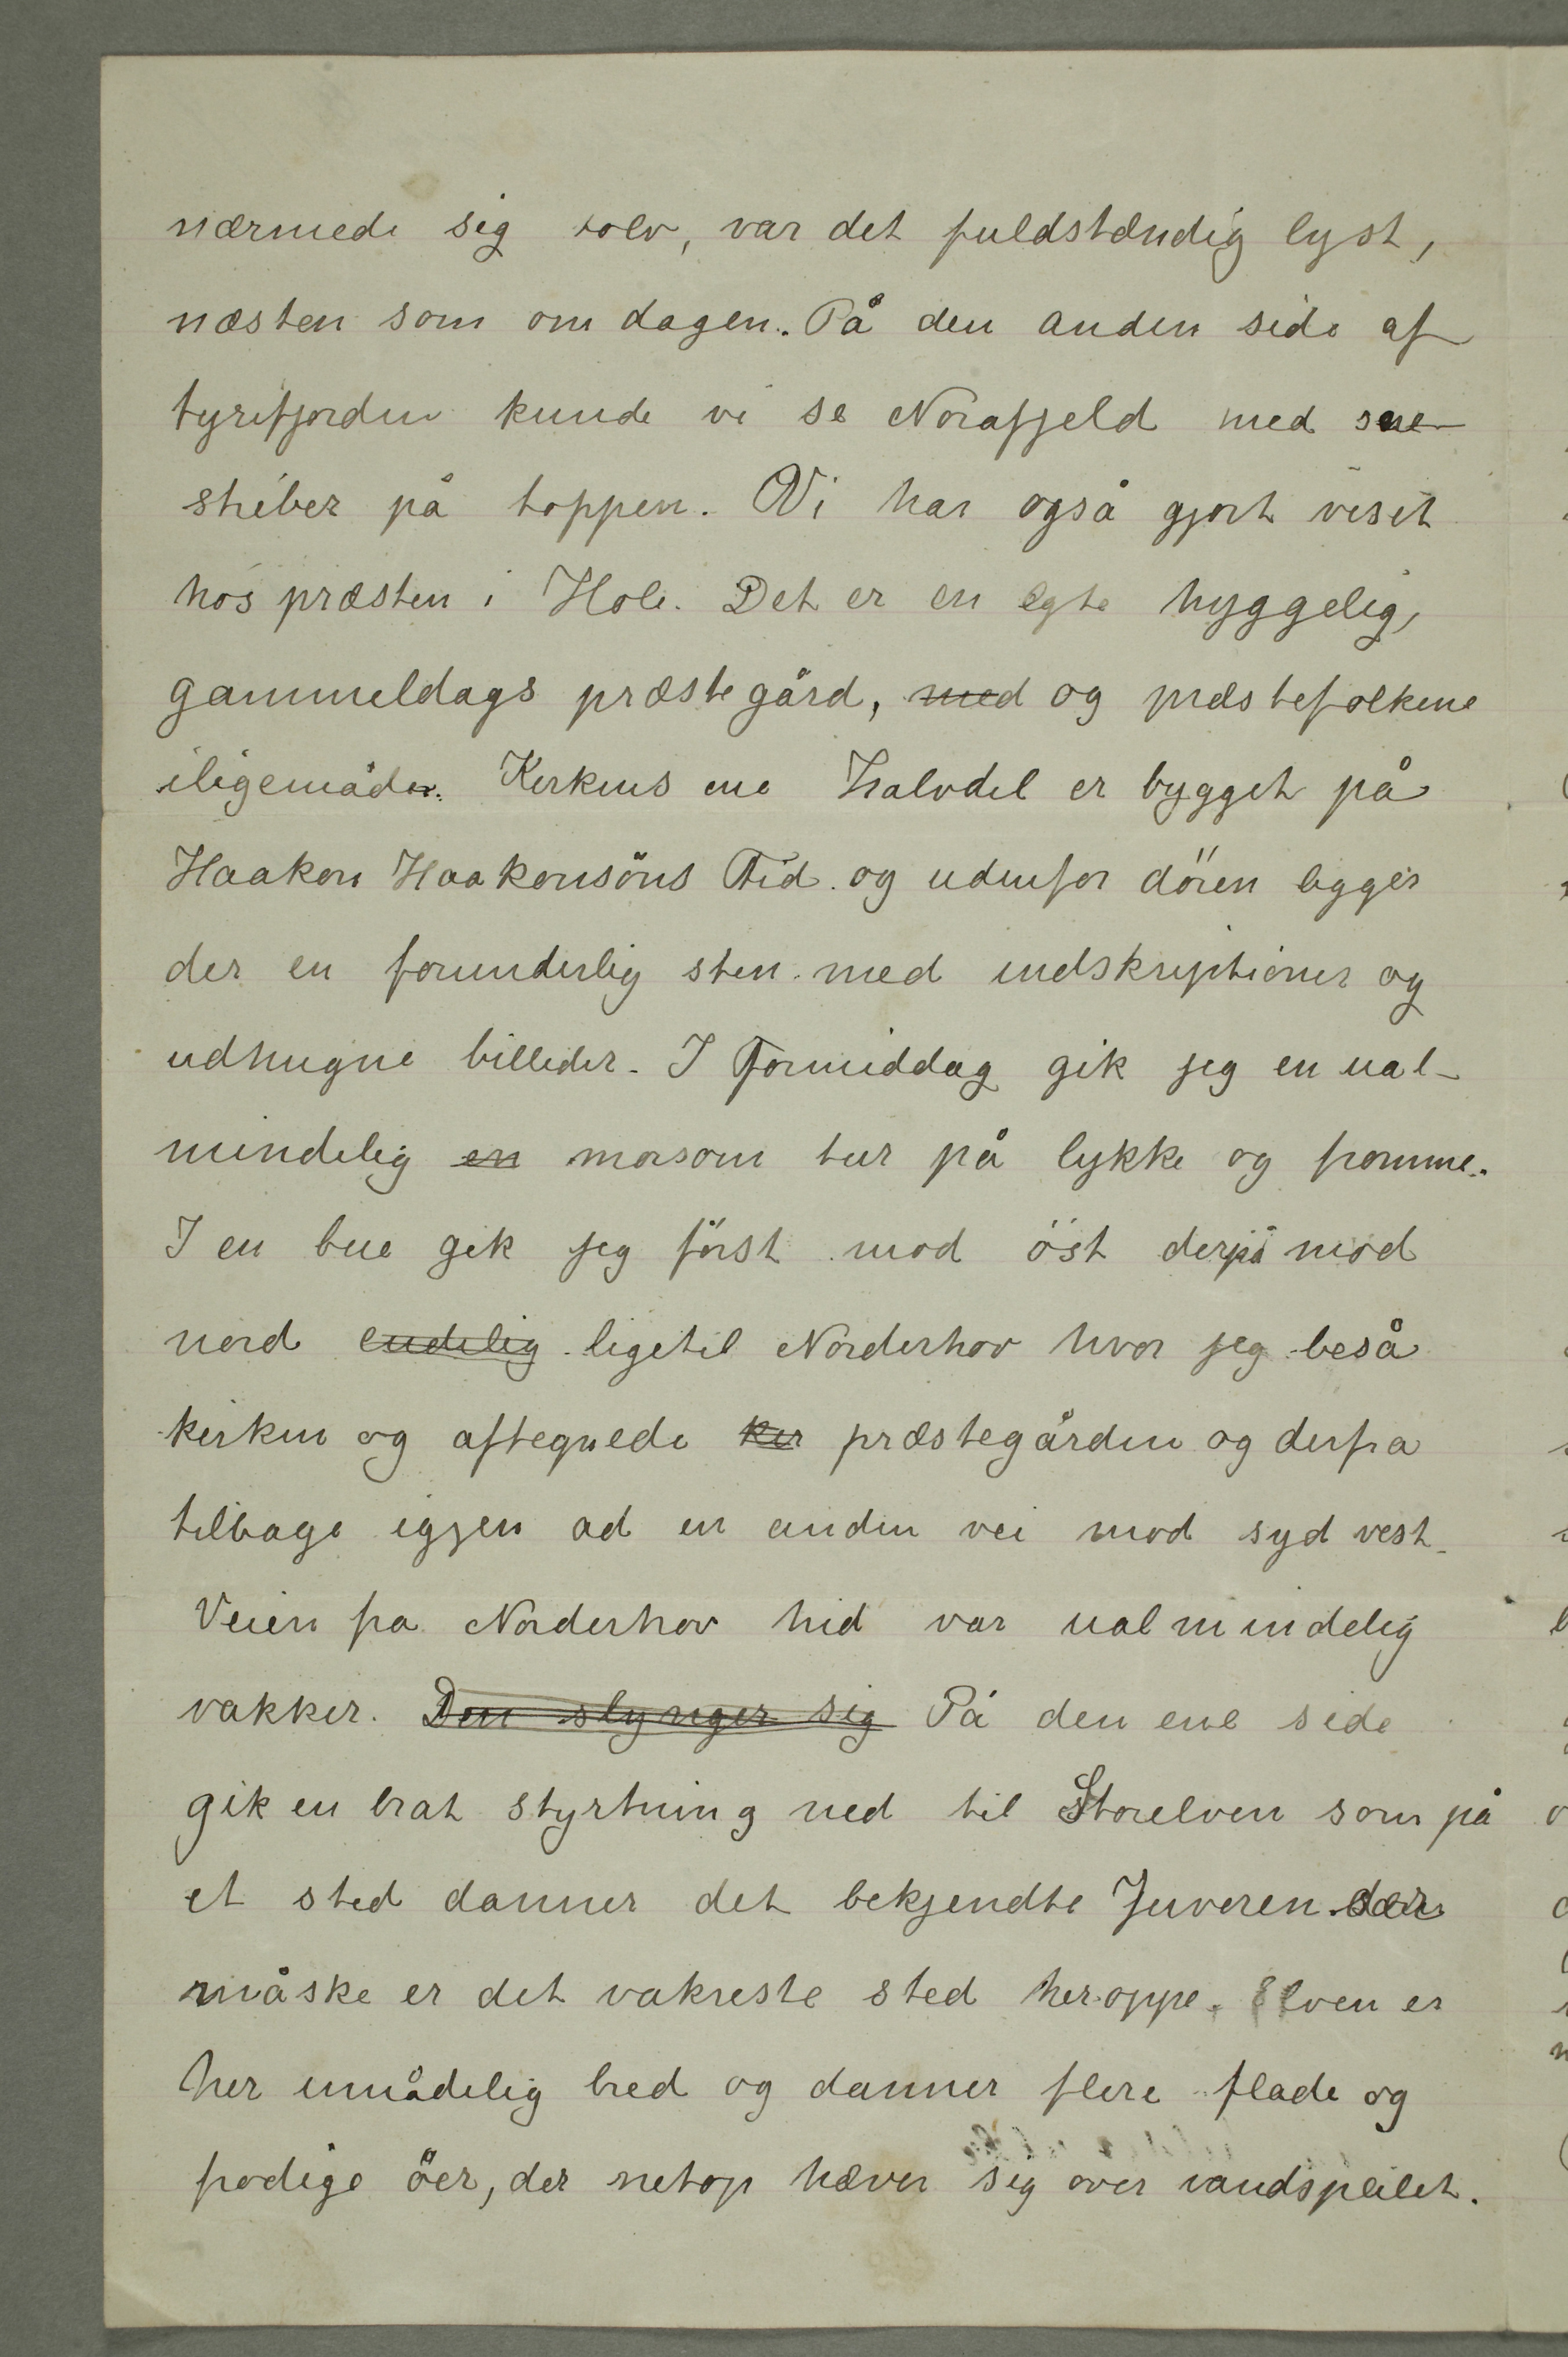 nærmede sig tolv, var det fuldstændig lyst,
næsten som om dagen. På den anden side af
tyrifjorden kunde vi se Norafjeld med sne-
striber på toppen. Vi har også gjort visit
hos præsten i Hole. Det er en egte hyggelig,
gammeldags præstegård, med og præstefolkene
iligemåder. Kirkens ene Halvdel er bygget på
Haakon Haakonsöns Tid og udenfor dören ligger
der en forunderlig sten med indskriptioner og
udhugne billeder. I Formiddag gik jeg en ual-
mindelig en morsom tur på lykke og fromme.
I en bue gik jeg först mod öst derpå mod
nord endelig ligetil Norderhov hvor jeg beså
kirken og aftegnede kir præstegården og derfra
tilbage igjen ad en anden vei mod syd vest.
Veien fra Norderhov hid var ualmindelig
vakker. Den slynger sig På den ene side
gik en brat styrtning ned til Storelven som på
et sted danner det bekjendte Juveren der
måske er det vakreste sted heroppe. Elven er
her umådelig bred og danner flere flade og
frodige öer, der netop hæver sig over vandspeilet.